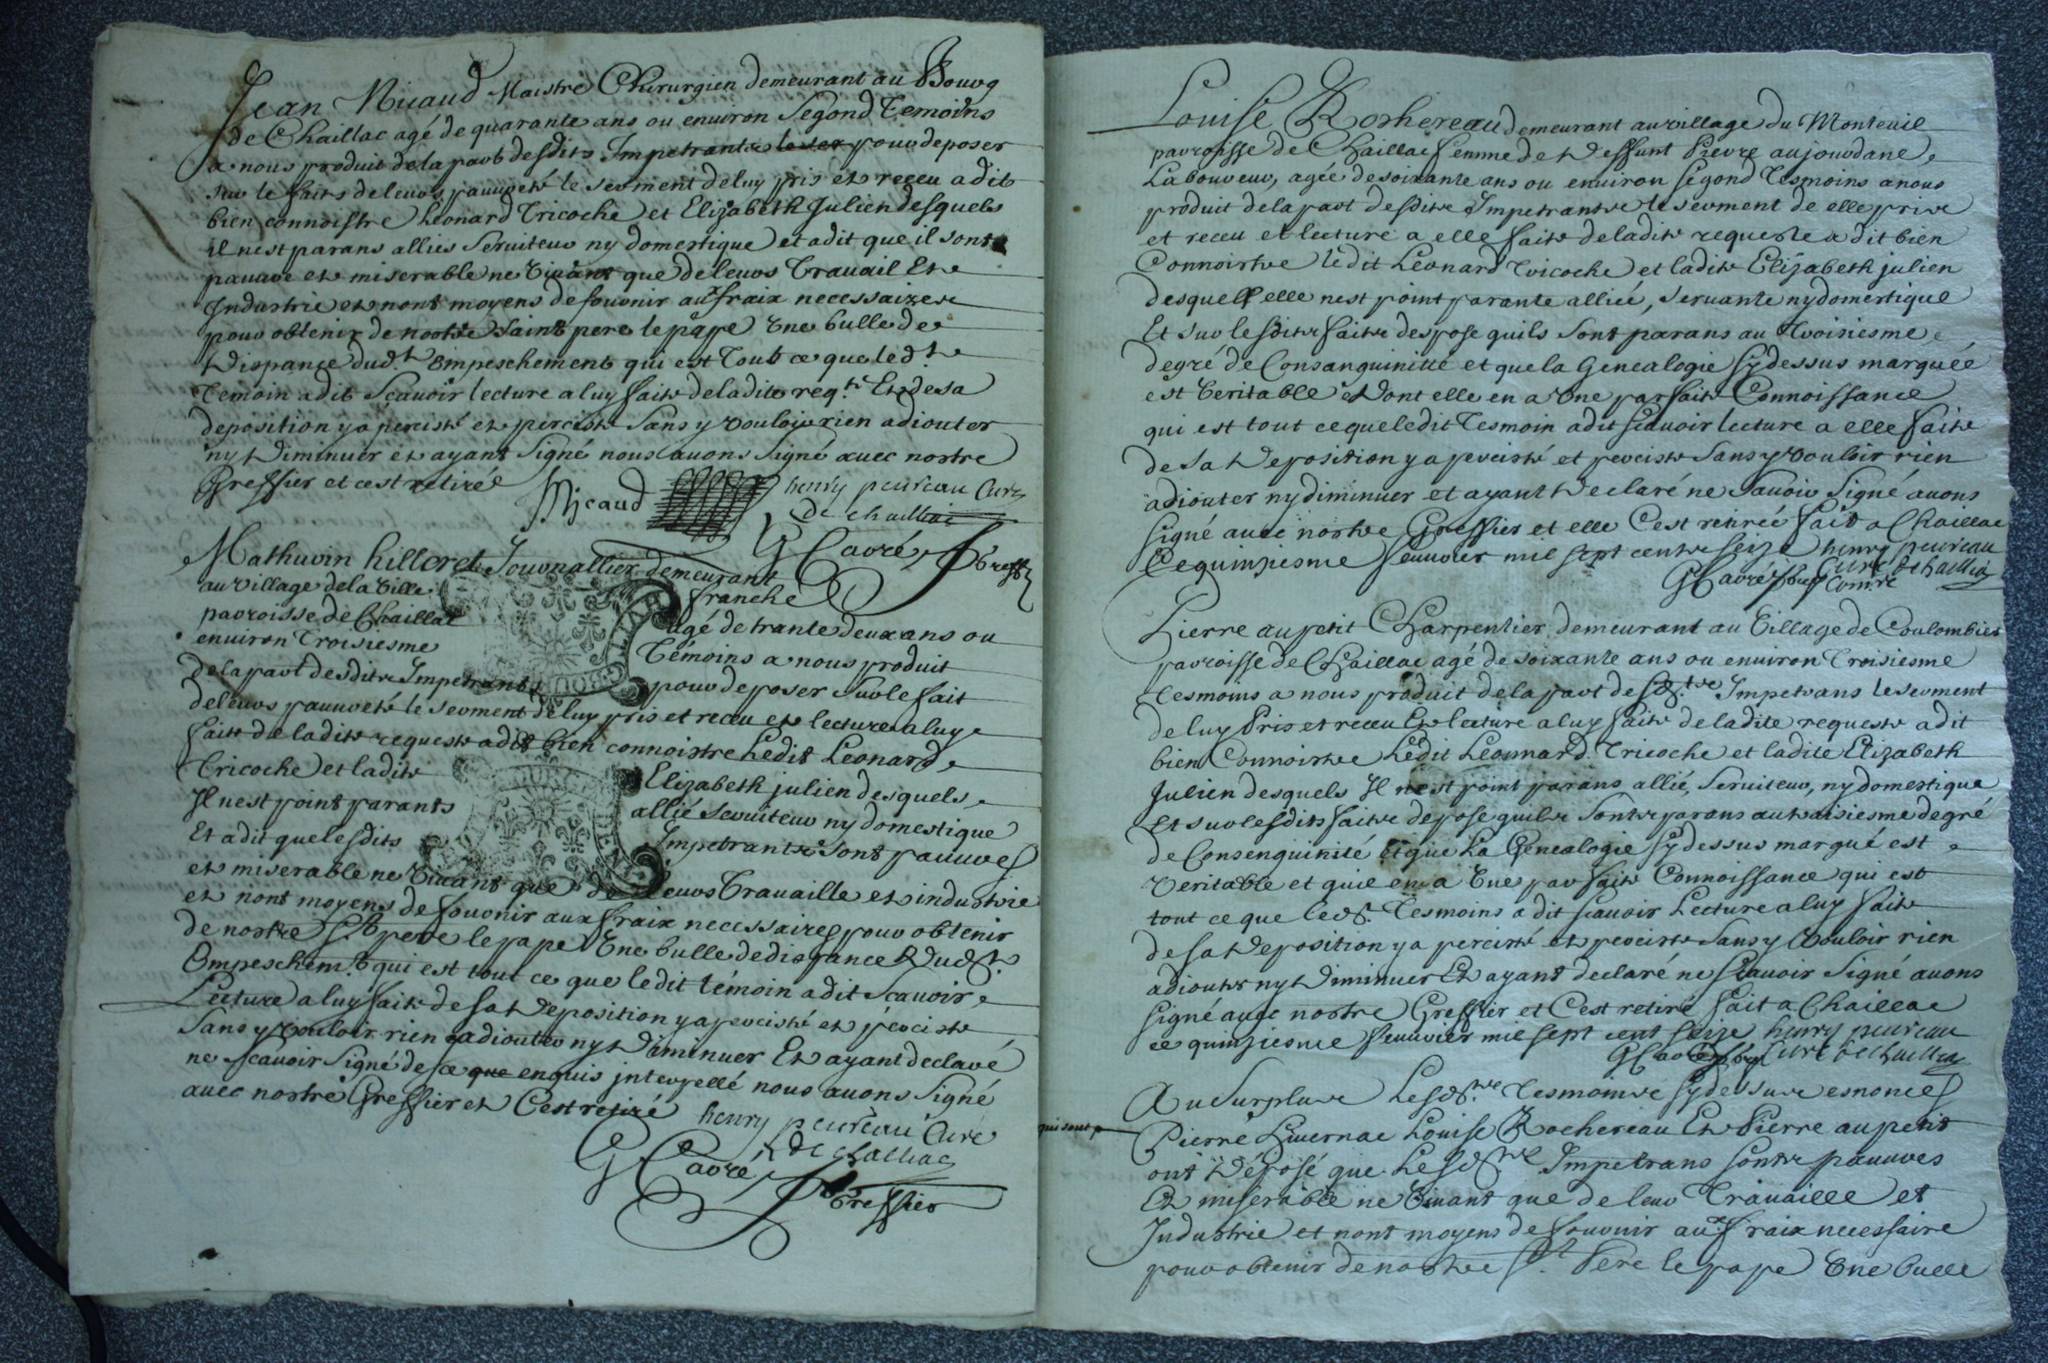 Jean Micaud Maistre Chirurgien demeurant au Bourg
de Chaillac agé de quarante ans ou enuiron Segond Temoins
a nous produit de la part desdits Impetrants pour deposer
sur le faits de leurs pauureté le serment de luy pris et receu a dit
bien connoistre Leonard Tricoche et Elizabeth Julien desquels
il nest parans alliés Seruiteur ny domestique et a dit que il sont
pauure et miserable ne viuant que de leurs Trauail Et
Industrie et nont moyens de fournir aux fraix necessaires
pour obtenir de nostre saint pere le pape vne bulle de
Dispance dud.t Empeschement qui est Tout ce que le d.t
Temoin a dit Scauoir lecture a luy faite de ladite req.te Et de sa
deposition y a perciste et perciste Sans y vouloir rien adiouter
ny Diminuer et ayant Signé nous auons Signé auec nostre
Greffier et cest retiré
Micaud henry peureau Curé
de chaillac
G Cavré Greff
Mathurin hilloret Journallier demeurant
au village de la ville franche
parroisse de Chaillac agé de trante deux ans ou
enuiron Troisiesme Témoins a nous produit
de la part desdits Impetrants pour deposer sur le fait
de leurs pauureté le serment de luy pris et receu et lecture a luy
faite de ladite requeste a dit bien connoistre Ledit Leonard
Tricoche et ladite Elizabeth julien desquels
Il nest point parants allié seruiteur ny domestique
Et a dit que lesdits Impetrants sont pauures
et miserable ne viuant que de leurs Trauaille et industrie
et nont moyens de fouvnir aux fraix necessaires pour obtenir
de nostre S.t pere le pape vne bulle de dispance Dud.t
Empeschem.t qui est tout ce que ledit témoin a dit Scauoir
Lecture a luy faite de sa Deposition y a perciste et perciste
Sans y vouloir rien adiouter ny Diminuer Et ayant declaré
ne Scauoir Signé de ce que enquis interpellé nous auons Signé
auec nostre Greffier et Cest retiré
henry peureau Curé
de chaillac
G Cavré Greffier
Louise Rochereau demeurant au village du Monteuil
parroisse de Chaillac femme de Deffunt Pierre aujourdane
Laboureur, agée de soixante ans ou enuiron segond Tesmoins a nous
produit de la part desdits Impetrants le serment de elle pris
et receu et lecture a elle faite de ladite requeste a dit bien
Connoistre ledit Leonard Tricoche et ladite Elizabeth julien
desquels elle nest point parante alliée, seruante ny domestique
Et sur lesdits faits despose quils sont parans au troisiesme
degré de Consanguinitté et que la Genealogie sy dessus marquée
est veritable et Dont elle en a vne parfaite Connoissance
qui est tout ce que ledit Tesmoin a dit scauoir lecture a elle faite
de sa Deposition y a perciste et perciste Sans y vouloir rien
adiouter ny diminuer et ayant Declaré ne Sauoir Signé auons
Signé auec nostre Greffier et elle Cest retirée fait a Chaillac
Ce quinziesme feuurier mil sept cents seize henry peureau
G Cavré Curé de chaillac
Comre
Pierre aupetit Charpentier demeurant au Village de Coulombier
parroisse de Chaillac agé de soixante ans ou enuiron Troisiesme
Tesmoins a nous produit de la part desd.ts Impetrans le serment
de luy Pris et receu Et lecture a luy faite de ladite requeste a dit
bien Connoistre Ledit Leonnard Tricoche et ladite Elizabeth
Julien desquels Il nest point parans allié, Seruiteur, ny domestique
Et sur lesdits faits depose quils Sonts parans au troisiesme degré
de Consenguinité et que La Genealogie sy dessus marqué est
veritable et quil en a vne parfaite Connoissance qui est
tout ce que led.t Tesmoins a dit scauoir Lecture a luy faite
de sa Deposition y a perciste et perciste Sans y vouloir rien
adiouter ny Diminuer Et ayant declaré ne Scauoir Signé auons
signé auec nostre Greffier et Cest retiré fait a Chaillac
ce quinziesme feuurier mil sept cent seize henry peureau
G Cavré Curé de chaillac
Au Surplus Lesd.ts Tesmoins sy dessus esnoncés
qui sont
Pierre Liuernac Louise Rochereau Et Pierre aupetit
ont Déposé que Lesd.ts Impetrans sonts pauures
Et miserable ne viuant que de leur Trauaille et
Industrie et nont moyens de fouvnir aux fraix necessaire
pour obtenir de nostre S.t Pere le pape vne bulle